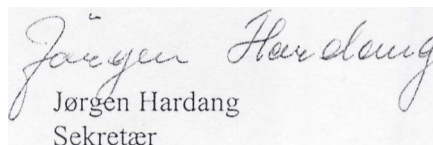 Jörgen Hardang
Jørgen Hardang
Sekretær